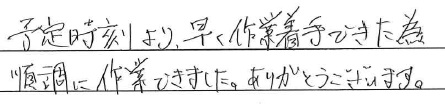 予定時刻より、早く作業着手できた為
順調に作業できました。ありがとうございます。